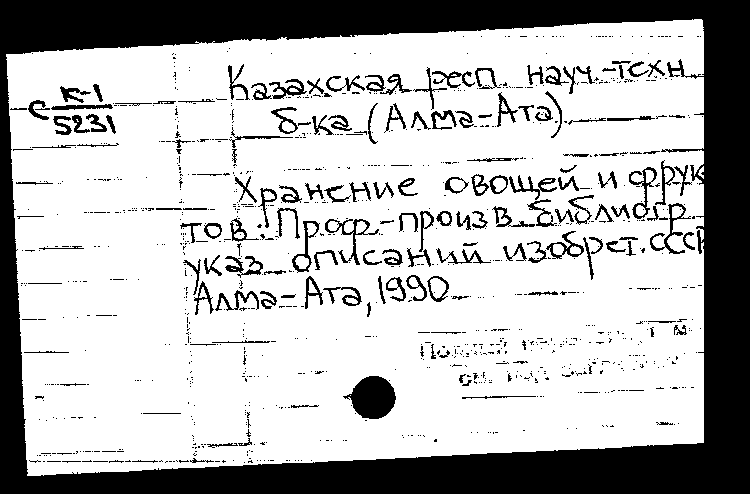 С К-1
5231
Казахская респ. науч.-техн
б-ка (Алма-Ата).
Хранение овощей и фрук
тов: Проф.-произв. библиогр
указ. описаний изобрет. СССР
Алма-Ата, 1990
Полный
см. под